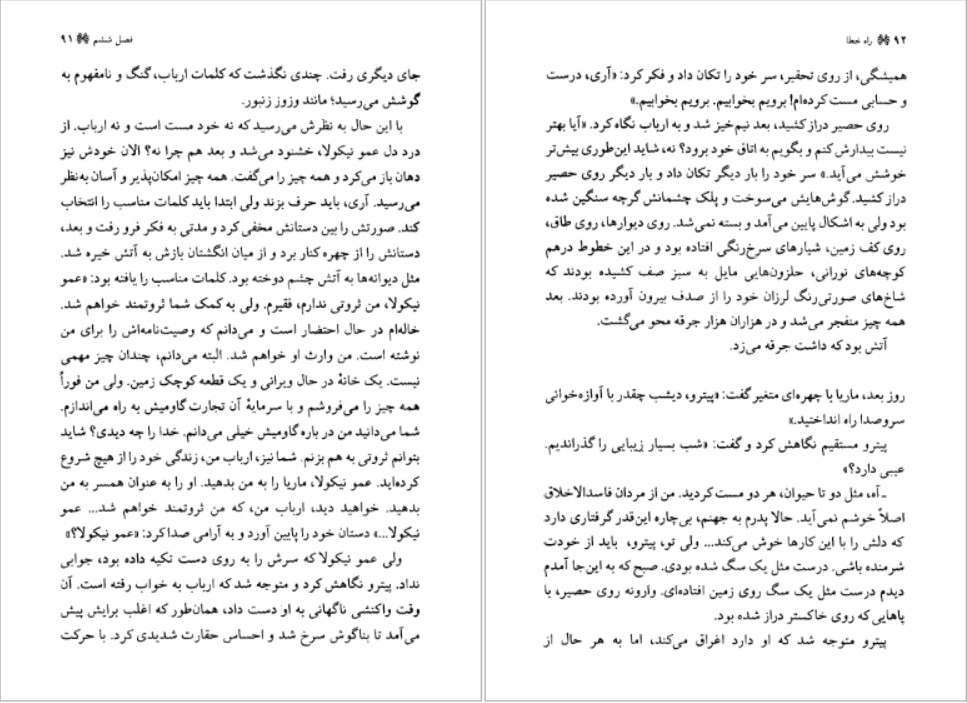 فصل ششم ۹۱
جای دیگری رفت. چندی نگذشت که کلمات ارباب، گنگ و نامفهوم به
گوشش می‌رسید؛ مانند وزوز زنبور.
با این حال به نظرش می‌رسید که نه خود مست است و نه ارباب. از
درد دل عمو نیکولا، خشنود می‌شد و بعد هم چرا نه؟ الان خودش نیز
دهان باز می‌کرد و همه چیز را می‌گفت. همه چیز امکان‌پذیر و آسان به‌نظر
می‌رسید. آری، باید حرف بزند ولی ابتدا باید کلمات مناسب را انتخاب
کند. صورتش را بین دستانش مخفی کرد و مدتی به فکر فرو رفت و بعد،
دستانش را از چهره کنار برد و از میان انگشتان بازش به آتش خیره شد.
مثل دیوانه‌ها به آتش چشم دوخته بود. کلمات مناسب را یافته بود: «عمو
نیکولا، من ثروتی ندارم، فقیرم. ولی به کمک شما ثروتمند خواهم شد.
خاله‌ام در حال احتضار است و می‌دانم که وصیت‌نامه‌اش را برای من
نوشته است. من وارث او خواهم شد. البته می‌دانم، چندان چیز مهمی
نیست. یک خانهٔ در حال ویرانی و یک قطعه کوچک زمین. ولی من فوراً
همه چیز را می‌فروشم و با سرمایهٔ آن تجارت گاومیش به راه می‌اندازم.
شما می‌دانید من در باره گاومیش خیلی می‌دانم. خدا را چه دیدی؟ شاید
بتوانم ثروتی به هم بزنم. شما نیز، ارباب من، زندگی خود را از هیچ شروع
کرده‌اید. عمو نیکولا، ماریا را به من بدهید. او را به عنوان همسر به من
بدهید. خواهید دید، ارباب من، که من ثروتمند خواهم شد... عمو
نیکولا...» دستان خود را پایین آورد و به آرامی صدا کرد: «عمو نیکولا؟»
ولی عمو نیکولا که سرش را به روی دست تکیه داده بود، جوابی
نداد. پیترو نگاهش کرد و متوجه شد که ارباب به خواب رفته است. آن
وقت واکنشی ناگهانی به او دست داد، همان‌طور که اغلب برایش پیش
می‌آمد تا بناگوش سرخ شد و احساس حقارت شدیدی کرد. با حرکت
۹۲ راه خطا
همیشگی، از روی تحقیر، سر خود را تکان داد و فکر کرد: «آری، درست
و حسابی مست کرده‌ام! برویم بخوابیم. برویم بخوابیم.»
روی حصیر دراز کشید، بعد نیم‌خیز شد و به ارباب نگاه کرد. «آیا بهتر
نیست بیدارش کنم و بگویم به اتاق خود برود؟ نه، شاید این‌طوری بیش‌تر
خوشش می‌آید.» سر خود را بار دیگر تکان داد و بار دیگر روی حصیر
دراز کشید. گوش‌هایش می‌سوخت و پلک چشمانش گرچه سنگین شده
بود ولی به اشکال پایین می‌آمد و بسته نمی‌شد. روی دیوارها، روی طاق،
روی کف زمین، شیارهای سرخ‌رنگی افتاده بود و در این خطوط درهم
کوچه‌های نورانی، حلزون‌هایی مایل به سبز صف کشیده بودند که
شاخ‌های صورتی‌رنگ لرزان خود را از صدف بیرون آورده بودند. بعد
همه چیز منفجر می‌شد و در هزاران هزار جرقه محو می‌گشت.
آتش بود که داشت جرقه می‌زد.
روز بعد، ماریا با چهره‌ای متغیر گفت: «پیترو، دیشب چقدر با آوازه‌خوانی
سروصدا راه انداختید.»
پیترو مستقیم نگاهش کرد و گفت: «شب بسیار زیبایی را گذراندیم.
عیبی دارد؟»
ـ آه، مثل دو تا حیوان، هر دو مست کردید. من از مردان فاسدالاخلاق
اصلاً خوشم نمی‌آید. حالا پدرم به جهنم، بی‌چاره این‌قدر گرفتاری دارد
که دلش را با این کارها خوش می‌کند... ولی تو، پیترو، باید از خودت
شرمنده باشی. درست مثل یک سگ شده بودی. صبح که به این‌جا آمدم
دیدم درست مثل یک سگ روی زمین افتاده‌ای. وارونه روی حصیر، با
پاهایی که روی خاکستر دراز شده بود.
پیترو متوجه شد که او دارد اغراق می‌کند، اما به هر حال از